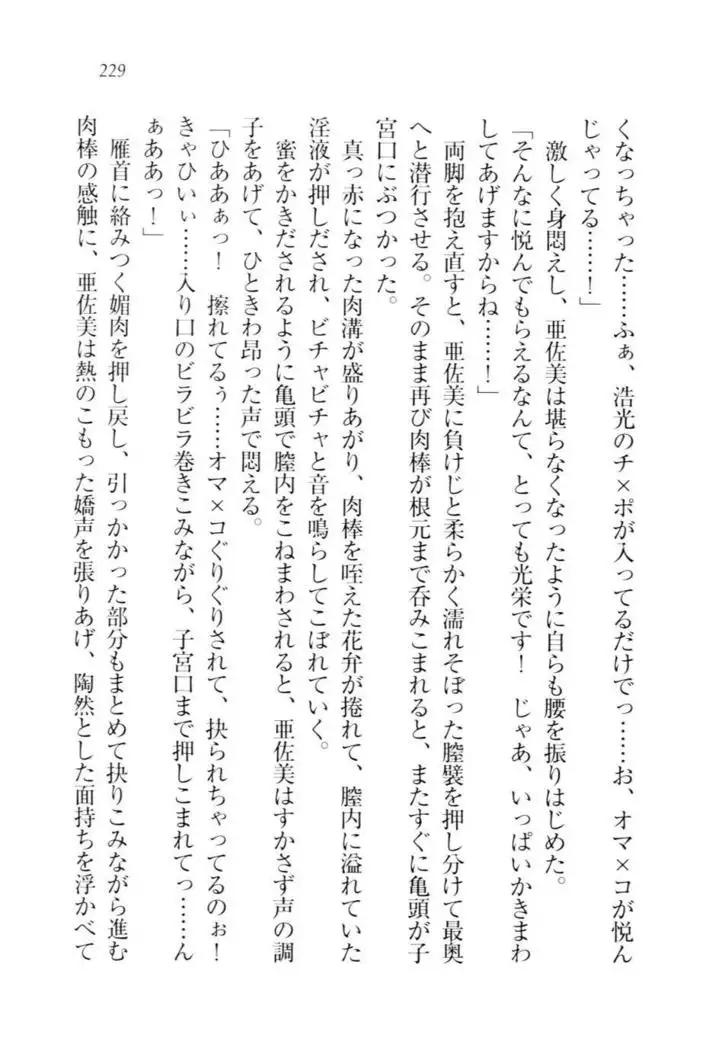 229
くなっちゃった……ふぁ、浩光のチ×ポが入ってるだけでっ……お、オマ×コが悦ん
じゃってる……！」
激しく身悶えし、亜佐美は堪らなくなったように自らも腰を振りはじめた。
「そんなに悦んでもらえるなんて、とっても光栄です！　じゃあ、いっぱいかきまわ
してあげますからね……！」
両脚を抱え直すと、亜佐美に負けじと柔らかく濡れそぼった膣襞を押し分けて最奥
へと潜行させる。そのまま再び肉棒が根元まで呑みこまれると、またすぐに亀頭が子
宮口にぶつかった。
真っ赤になった肉溝が盛りあがり、肉棒を咥えた花弁が捲れて、膣内に溢れていた
淫液が押しだされ、ビチャビチャと音を鳴らしてこぼれていく。
蜜をかきだされるように亀頭で膣内をこねまわされると、亜佐美はすかさず声の調
子をあげて、ひときわ昂った声で悶える。
「ひああぁっ！　擦れてるぅ……オマ×コぐりぐりされて、抉られちゃってるのぉ！
きゃひいぃ……入り口のビラビラ巻きこみながら、子宮口まで押しこまれてっ……ん
ぁああっ！」
雁首に絡みつく媚肉を押し戻し、引っかかった部分もまとめて抉りこみながら進む
肉棒の感触に、亜佐美は熱のこもった嬌声を張りあげ、陶然とした面持ちを浮かべて